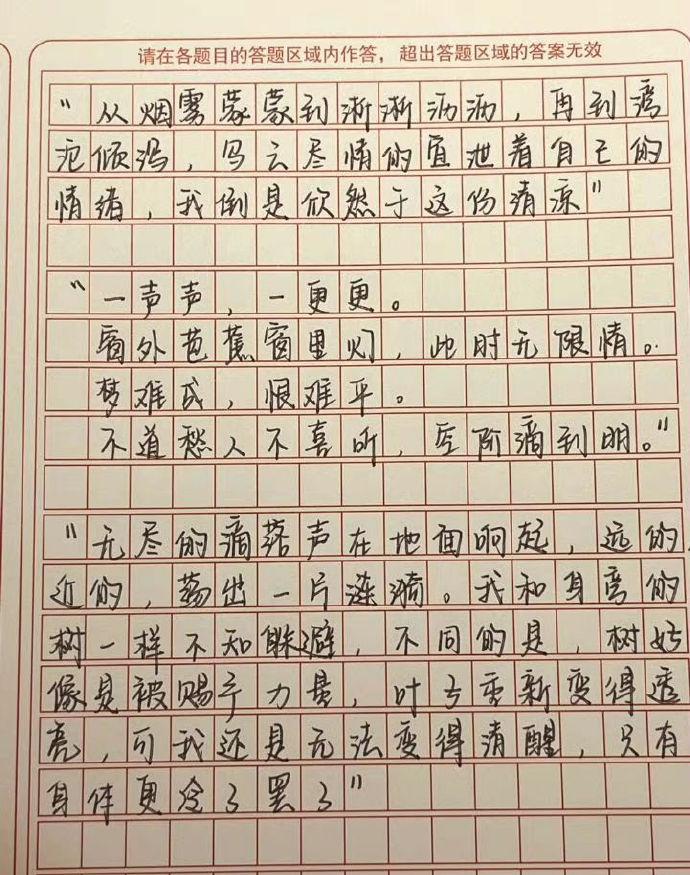 请在各题目的答题区域内作答，超出答题区域的答案无效
“从烟雾蒙蒙到淅淅沥沥，再到滂
沱倾泻，乌云尽情的宣泄着自己的
情绪，我倒是欣然于这份清凉”
“一声声，一更更。
窗外芭蕉窗里灯，此时无限情。
梦难成，恨难平。
不道愁人不喜听，空阶滴到明。”
“无尽的滴落声在地面响起，远的，
近的，荡出一片涟漪。我和身旁的
树一样不知躲避，不同的是，树好
像是被赐予力量，叶子重新变得透
亮，可我还是无法变得清醒，只有
身体更冷了罢了”